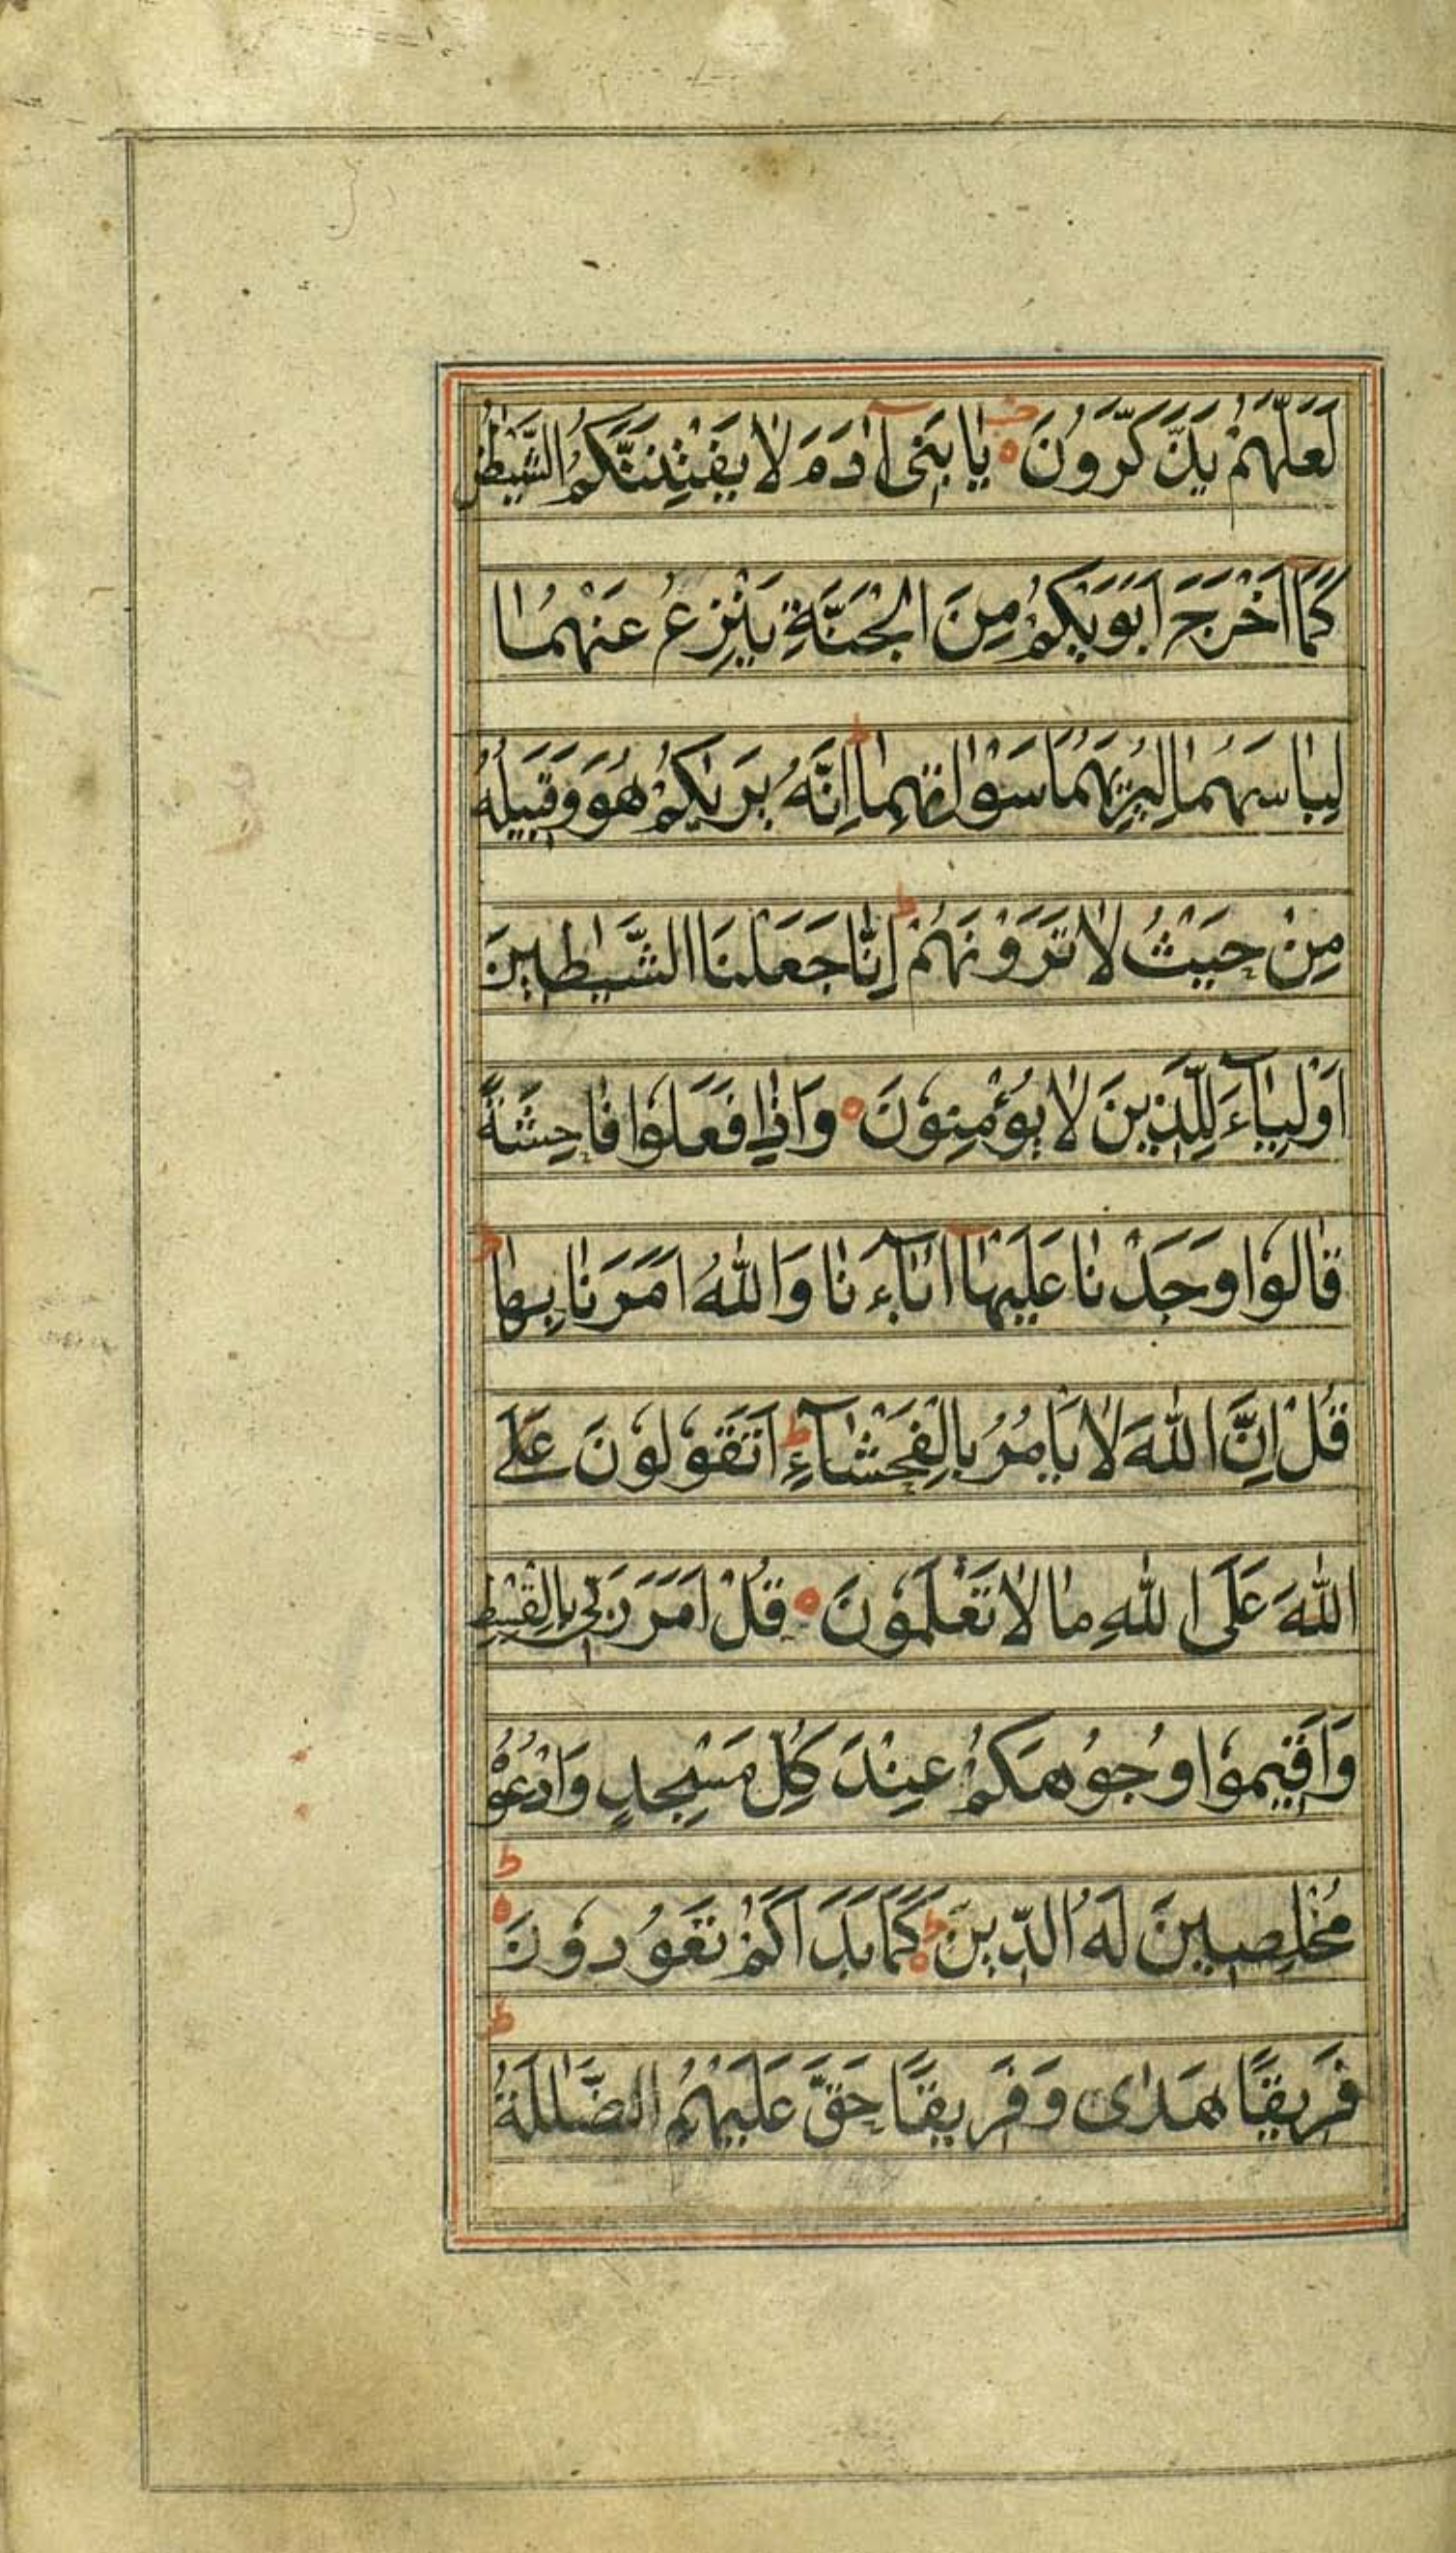 لَعَلَّهُمْ يَذَّكَّرُونَ ه يٰا بَنٖى آدَمَ لاٰ يَفْتِنَنَّكُمُ الشَّيْطٰنُ
كَمٰا اَخْرَجَ اَبَوَيْكُمْ مِنَ الْجَنَّةِ يَنْزِعُ عَنْهُمٰا
لِبٰاسَهُمٰا لِيُرِيَهُمٰا سَوْاٰتِهِمٰا ط اِنَّهُ يَرٰيكُمْ هُوَ وَقَبٖيلُهُ
مِنْ حَيْثُ لاٰ تَرَوْنَهُمْ ط اِنّٰا جَعَلْنَا الشَّيٰطٖينَ
اَوْلِيٰآءَ لِلَّذٖينَ لاٰ يُؤْمِنُونَ ه وَاِذٰا فَعَلُوا فٰاحِشَةً
قٰالُوا وَجَدْنٰا عَلَيْهٰا اٰبٰآءَنٰا وَاللّٰهُ اَمَرَنٰا بِهٰا ط
قُلْ اِنَّ اللّٰهَ لاٰ يَأمُرُ بِالْفَحْشٰآءِ ط اَتَقُولُونَ عَلَى
اللّٰهَ عَلَى اللّٰهِ مٰا لاٰ تَعْلَمُونَ ه قُلْ اَمَرَ رَبّٖى بِالْقِسْطِ
وَاَقٖيمُوا وُجُوهَكُمْ عِنْدَ كُلِّ مَسْجِدٍ وَادْعُوهُ
مُخْلِصٖينَ لَهُ الدّٖينَ ط ه كَمٰا بَدَاَكُمْ تَعُودُونَ ط ه
فَرٖيقًا هَدٰى وَفَرٖيقًا حَقَّ عَلَيْهِمُ الضَّلٰلَةُ ط